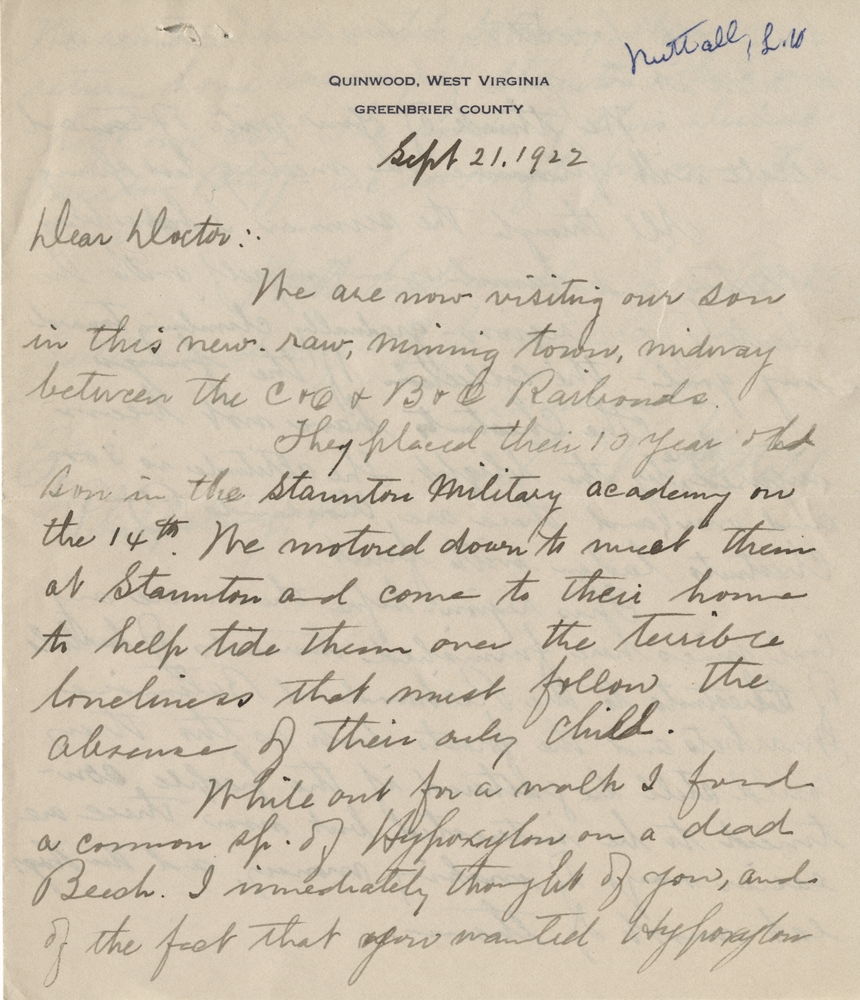 Nuttall, L.W
QUINWOOD, WEST VIRGINIA
GREENBRIER COUNTY
Sept 21. 1922
Dear Doctor:.
We are now visiting our son
in this new. raw, mining town, midway
between the C+O & B+O Railroads.
They placed their 13 year old
son in the Staunton Military academy on
the 14th. We motored down to meet them
at Staunton and come to their home
to help tide them over the terrible
loneliness that must follow the
absence of their only child.
While out for a walk I found
a common sp. of Hypoxylon on a dead
Beech. I immediately thought of you, and
of the fact that you wanted Hypoxylon